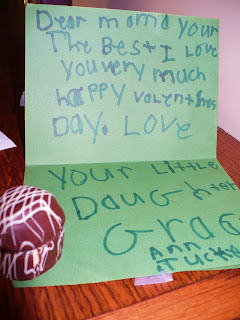 Dear mom your
The Best I Love
you very much
happy valentines
Day. Love
your Little
Daughter
Grac
Ann
Tucke